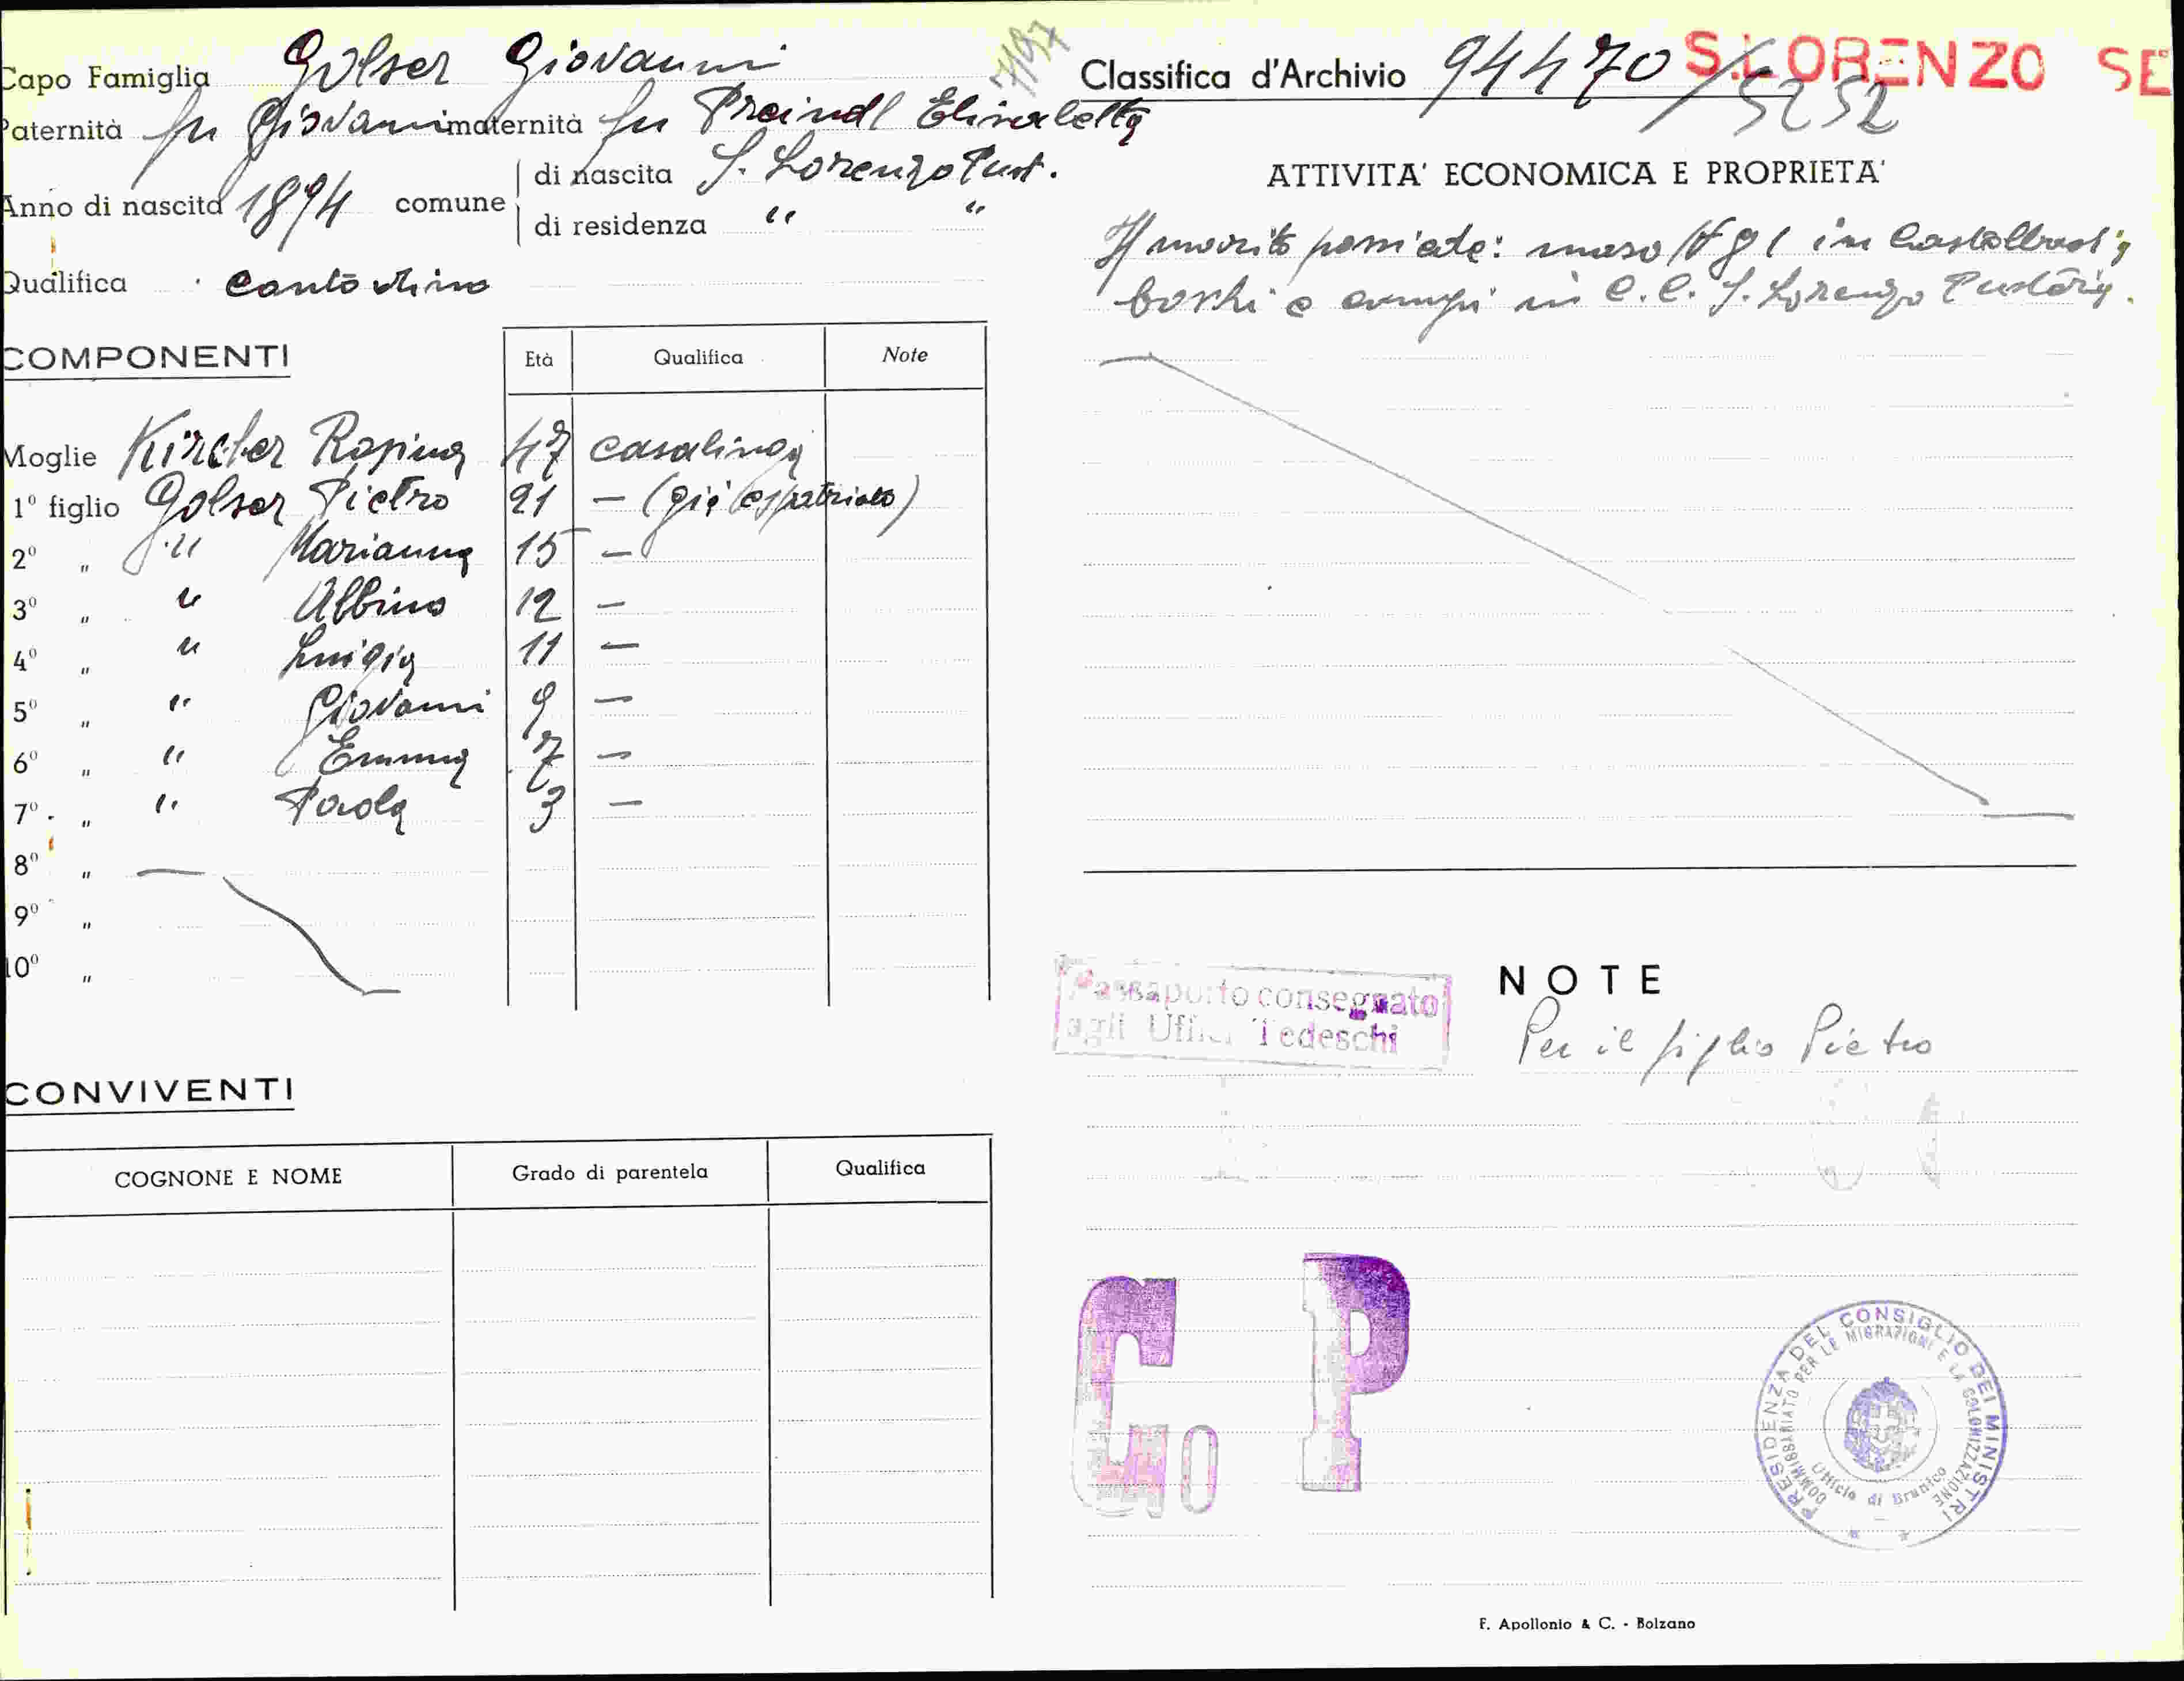 Capo Famiglia Golser Giovanni
7197
Classifica d'Archivio 94470/5252 S.LORENZO SE
Paternità fu Giovanni maternità fu Preindl Elisabetta
Anno di nascita 1894 comune di nascita S. Lorenzo Pust.
di residenza " "
Qualifica contadino
ATTIVITA' ECONOMICA E PROPRIETA'
Il marito possiede: maso in
boschi e campi in C.C. S. Lorenzo Pusteria.
COMPONENTI
Età Qualifica Note
Moglie Kircher Rosina 47 casalinga
1º figlio Golser Pietro 21 — (già espatriato)
2º " " Marianna 15 —
3º " " Albino 12 —
4º " " Luigia 11 —
5º " " Giovanni 9 —
6º " " Emma 7 —
7º " " Paola 3 —
8º "
9º "
10º "
Passaporto consegnato
agli Uffici Tedeschi
NOTE
Per il figlio Pietro
CONVIVENTI
COGNONE E NOME Grado di parentela Qualifica
G P
PRESIDENZA DEL CONSIGLIO DEI MINISTRI
COMMISSARIATO PER LE MIGRAZIONI E LA COLONIZZAZIONE
Ufficio di Brunico
F. Apollonio & C. - Bolzano